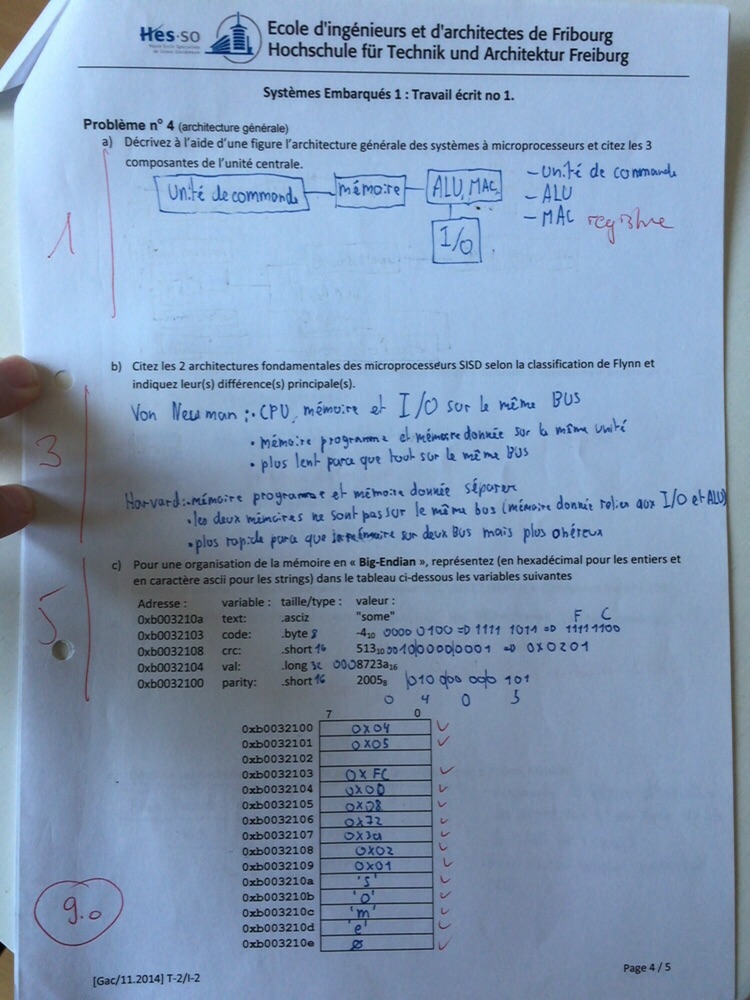 Hes·so
Ecole d'ingénieurs et d'architectes de Fribourg
Hochschule für Technik und Architektur Freiburg
Systèmes Embarqués 1 : Travail écrit no 1.
Problème n° 4 (architecture générale)
a) Décrivez à l'aide d'une figure l'architecture générale des systèmes à microprocesseurs et citez les 3
composantes de l'unité centrale.
Unité de commande mémoire ALU, MAC,
I/O
- Unité de commande
- ALU
- MAC registre
1
b) Citez les 2 architectures fondamentales des microprocesseurs SISD selon la classification de Flynn et
indiquez leur(s) différence(s) principale(s).
Von Neuman : • CPU, mémoire et I/O sur le même BUS
• mémoire programme et mémoire donnée sur la même unité
• plus lent parce que tout sur le même BUS
3
Harvard : • mémoire programme et mémoire donnée séparer
• les deux mémoires ne sont pas sur le même bus (mémoire donnée relier aux I/O et ALU)
• plus rapide parce que mémoire sur deux Bus mais plus onéreux
c) Pour une organisation de la mémoire en « Big-Endian », représentez (en hexadécimal pour les entiers et
en caractère ascii pour les strings) dans le tableau ci-dessous les variables suivantes
5
Adresse : variable : taille/type : valeur :
F C
0xb003210a text: .asciz "some"
0xb0032103 code: .byte 8 -4₁₀ 0000 0100 => 1111 1011 => 1111 1100
0xb0032108 crc: .short 16 513₁₀ 0010|0000|0001 => 0x0201
0xb0032104 val: .long 32 0008723a₁₆
0xb0032100 parity: .short 16 2005₈ 010 000 000 101
0 4 0 5
7 0
0xb0032100 0x04
0xb0032101 0x05
0xb0032102
0xb0032103 0xFC
0xb0032104 0x00
0xb0032105 0x08
0xb0032106 0x72
0xb0032107 0x3a
0xb0032108 0x02
0xb0032109 0x01
0xb003210a 's'
0xb003210b 'o'
0xb003210c 'm'
0xb003210d 'e'
0xb003210e ø
9.0
Page 4 / 5
[Gac/11.2014] T-2/I-2